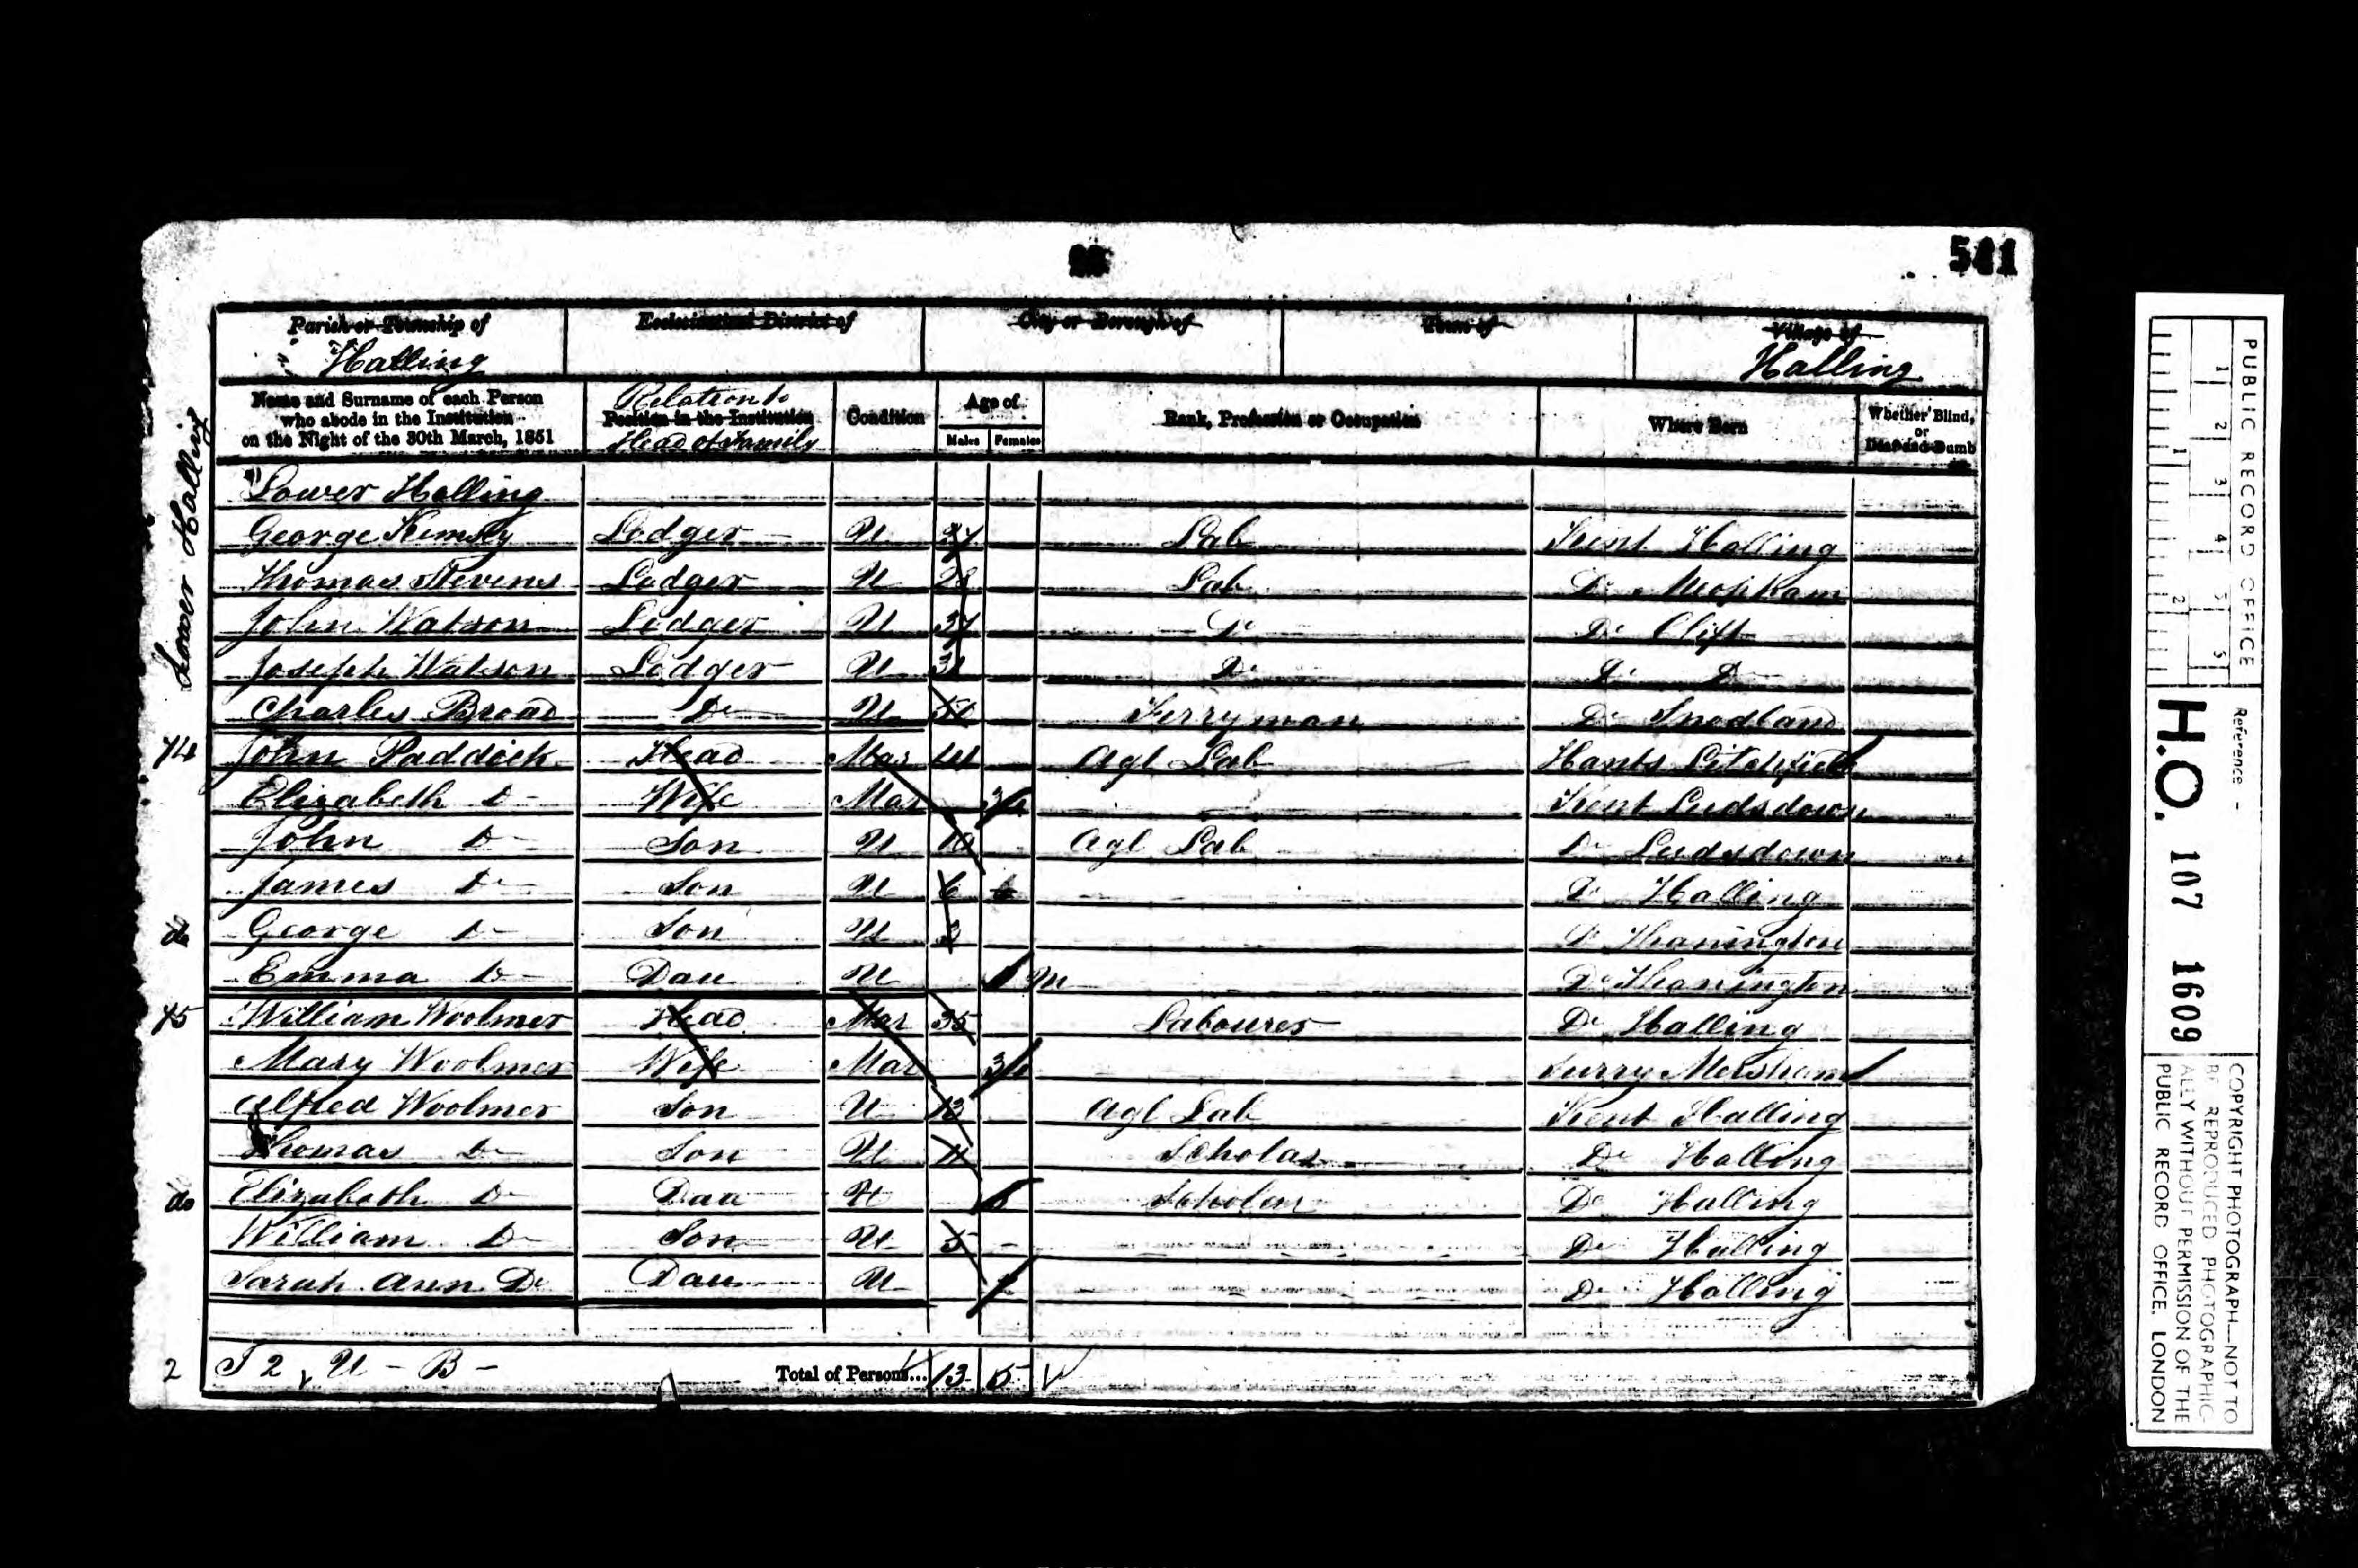 541
Parish or Township of
Halling
Ecclesiastical District of
City or Borough of
Town of
Village of
Halling
Name and Surname of each Person
who abode in the Institution
on the Night of the 30th March, 1851
Relation to
Position in the Institution
Head of Family
Condition
Age of
Males Females
Rank, Profession or Occupation
Where Born
Whether Blind,
or
Deaf and Dumb
Lower Halling
Lower Halling
George Kemsly Lodger U Lab Kent Halling
Thomas Stevens Lodger U 28 Lab Do Meopham
John Watson Lodger U 37 Do Do Clift
Joseph Watson Lodger U Do Do Do
Charles Broad Do U 50 Ferryman Do Snodland
74 John Paddick Head Mar 41 Agl Lab Hants Litchfield
Elizabeth Do Wife Mar Kent Ludsdown
John Do Son U 10 Agl Lab Do Ludsdown
James Do Son U 6 Do Halling
do George Do Son U Do
Emma Do Dau U M Do
75 William Woolmer Head Mar 35 Labourer Do Halling
Mary Woolmer Wife Mar Surry Mersham
Alfred Woolmer Son U 13 Agl Lab Kent Halling
Thomas Do Son U 11 Scholar Do Halling
do Elizabeth Do Dau U Scholar Do Halling
William Do Son U 5 Do Halling
Sarah Ann Do Dau U Do Halling
2 J 2 U - B - Total of Persons... 13 5
PUBLIC RECORD OFFICE
1 2 3 4 5
1 2
Reference -
H.O. 107 1609
COPYRIGHT PHOTOGRAPH—NOT TO
BE REPRODUCED PHOTOGRAPHIC-
ALLY WITHOUT PERMISSION OF THE
PUBLIC RECORD OFFICE, LONDON